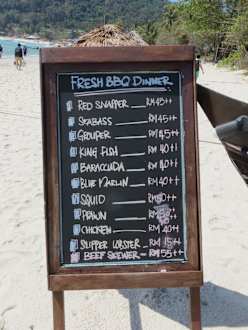 FRESH BBQ DINNER
RED SNAPPER RM45++
SEABASS RM45++
GROUPER RM45++
KING FISH RM40++
BARACUDA RM40++
BLUE MARLIN RM40++
SQUID
PRAWN
CHICKEN RM40++
SLIPPER LOBSTER
BEEF SKEWER RM55++